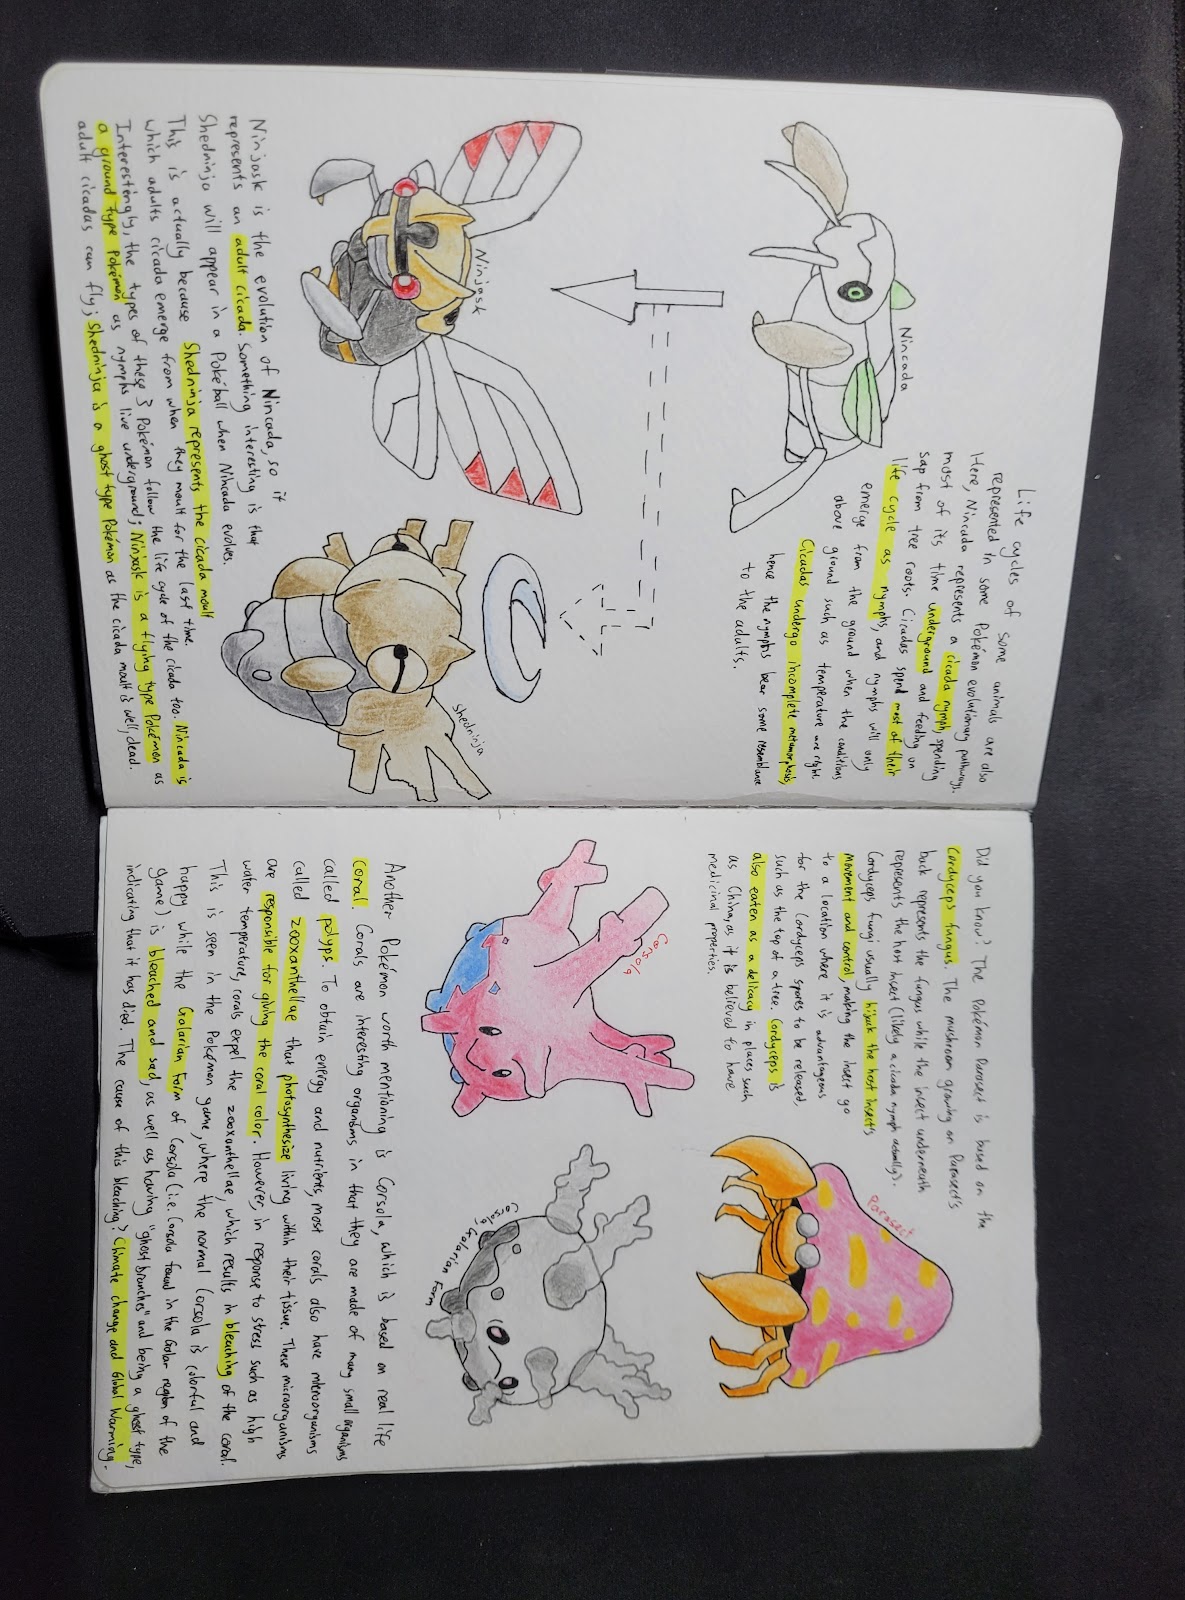 Life cycles of some animals are also
represented in some Pokémon evolutionary pathways.
Here, Nincada represents a cicada nymph, spending
most of its time underground and feeding on
sap from tree roots. Cicadas spend most of their
life cycle as nymphs, and nymphs will only
emerge from the ground when the conditions
above ground such as temperature are right.
Cicadas undergo incomplete metamorphosis,
hence the nymphs bear some resemblance
to the adults.
Nincada
Ninjask
Shedninja
Ninjask is the evolution of Nincada, so it
represents an adult cicada. Something interesting is that
Shedninja will appear in a Pokéball when Nincada evolves.
This is actually because Shedninja represents the cicada moult
which adults cicada emerge from when they moult for the last time.
Interestingly, the types of these 3 Pokémon follow the life cycle of the cicada too. Nincada is
a ground type Pokémon as nymphs live underground; Ninjask is a flying type Pokémon as
adult cicadas can fly; Shedninja is a ghost type Pokémon as the cicada moult is well, dead.
Did you know? The Pokémon Parasect is based on the
Cordyceps fungus. The mushroom growing on Parasect's
back represents the fungus while the insect underneath
represents the host insect (likely a cicada nymph actually).
Cordyceps fungi usually hijack the host insect's
movement and control, making the insect go
to a location where it is advantageous
for the Cordyceps spores to be released
such as the top of a tree. Cordyceps is
also eaten as a delicacy in places such
as China, as it is believed to have
medicinal properties.
Parasect
Corsola
Corsola, Galarian Form
Another Pokémon worth mentioning is Corsola, which is based on real life
coral. Corals are interesting organisms in that they are made of many small organisms
called polyps. To obtain energy and nutrients, most corals also have microorganisms
called zooxanthellae that photosynthesize living within their tissue. These microorganisms
are responsible for giving the coral color. However, in response to stress such as high
water temperature, corals expel the zooxanthellae, which results in bleaching of the coral.
This is seen in the Pokémon game, where the normal Corsola is colorful and
happy while the Galarian Form of Corsola (i.e. Corsola found in the Galar region of the
game) is bleached and sad, as well as having "ghost branches" and being a ghost type,
indicating that it has died. The cause of this bleaching? Climate change and Global Warming.